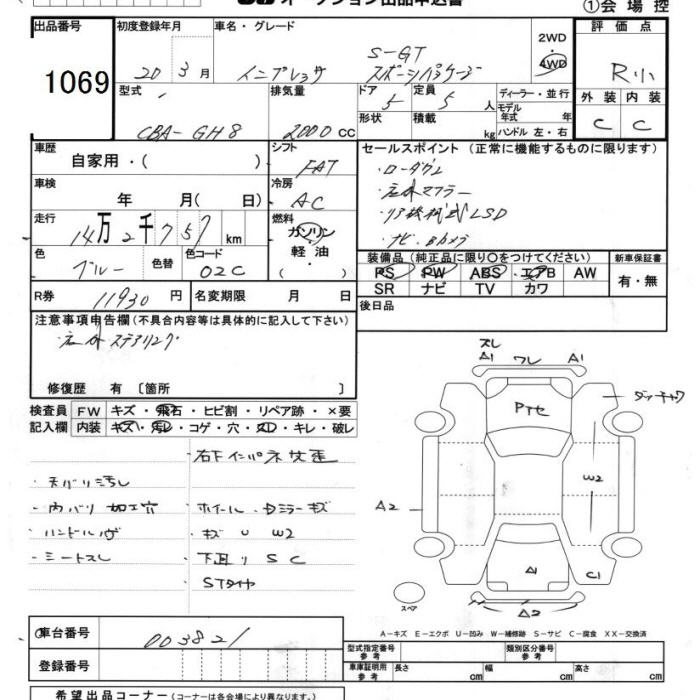 オークション出品申込書
①会場控
出品番号
1069
初度登録年月
20年 3月
車名・グレード
インプレッサ
S-GT
スポーツパッケージ
2WD
4WD
評価点
R小
型式
CBA-GH8
排気量
2000 CC
ドア
5
定員
5人
形状
積載
kg
ディーラー・並行
モデル年式 年
ハンドル 左・右
外装 内装
C C
車歴
自家用・( )
シフト
FAT
セールスポイント (正常に機能するものに限ります)
・ローダウン
・社外マフラー
・リヤ機械式LSD
・ナビ・Bカメラ
車検
年 月(日)
冷房
AC
走行
14万2千757 km
燃料
ガソリン
軽油
( )
色
ブルー
色替
色コード
02C
装備品 (純正品に限り○をつけてください)
PS PW ABS エアB AW
SR ナビ TV カワ
新車保証書
有・無
R券
11930円
名変期限 月 日
後日品
注意事項申告欄 (不具合内容等は具体的に記入して下さい)
社外ステアリング
修復歴 有 〔箇所 〕
検査員
記入欄
FW キズ・飛石・ヒビ割・リペア跡・×要
内装 キズ・汚レ・コゲ・穴・スレ・キレ・破レ
右下インパネ交歪
・天バリ汚し
・内バリ 加工穴
・ハンドル
・シートスレ
ホイール・Dミラーキズ
キズ U W2
下回りSC
STタイヤ
スレ
A1
ワレ
A1
Pアセ
A2
W2
A1
C1
A2
スペア
A-キズ E-エクボ U-凹み W-補修跡 S-サビ C-腐食 XX-交換済
車台番号
003821
登録番号
型式指定番号
参考
類別区分番号
参考
車庫証明用
参考
長さ cm
幅 cm
高さ cm
希望出品コーナー (コーナーは各会場により異なります。)